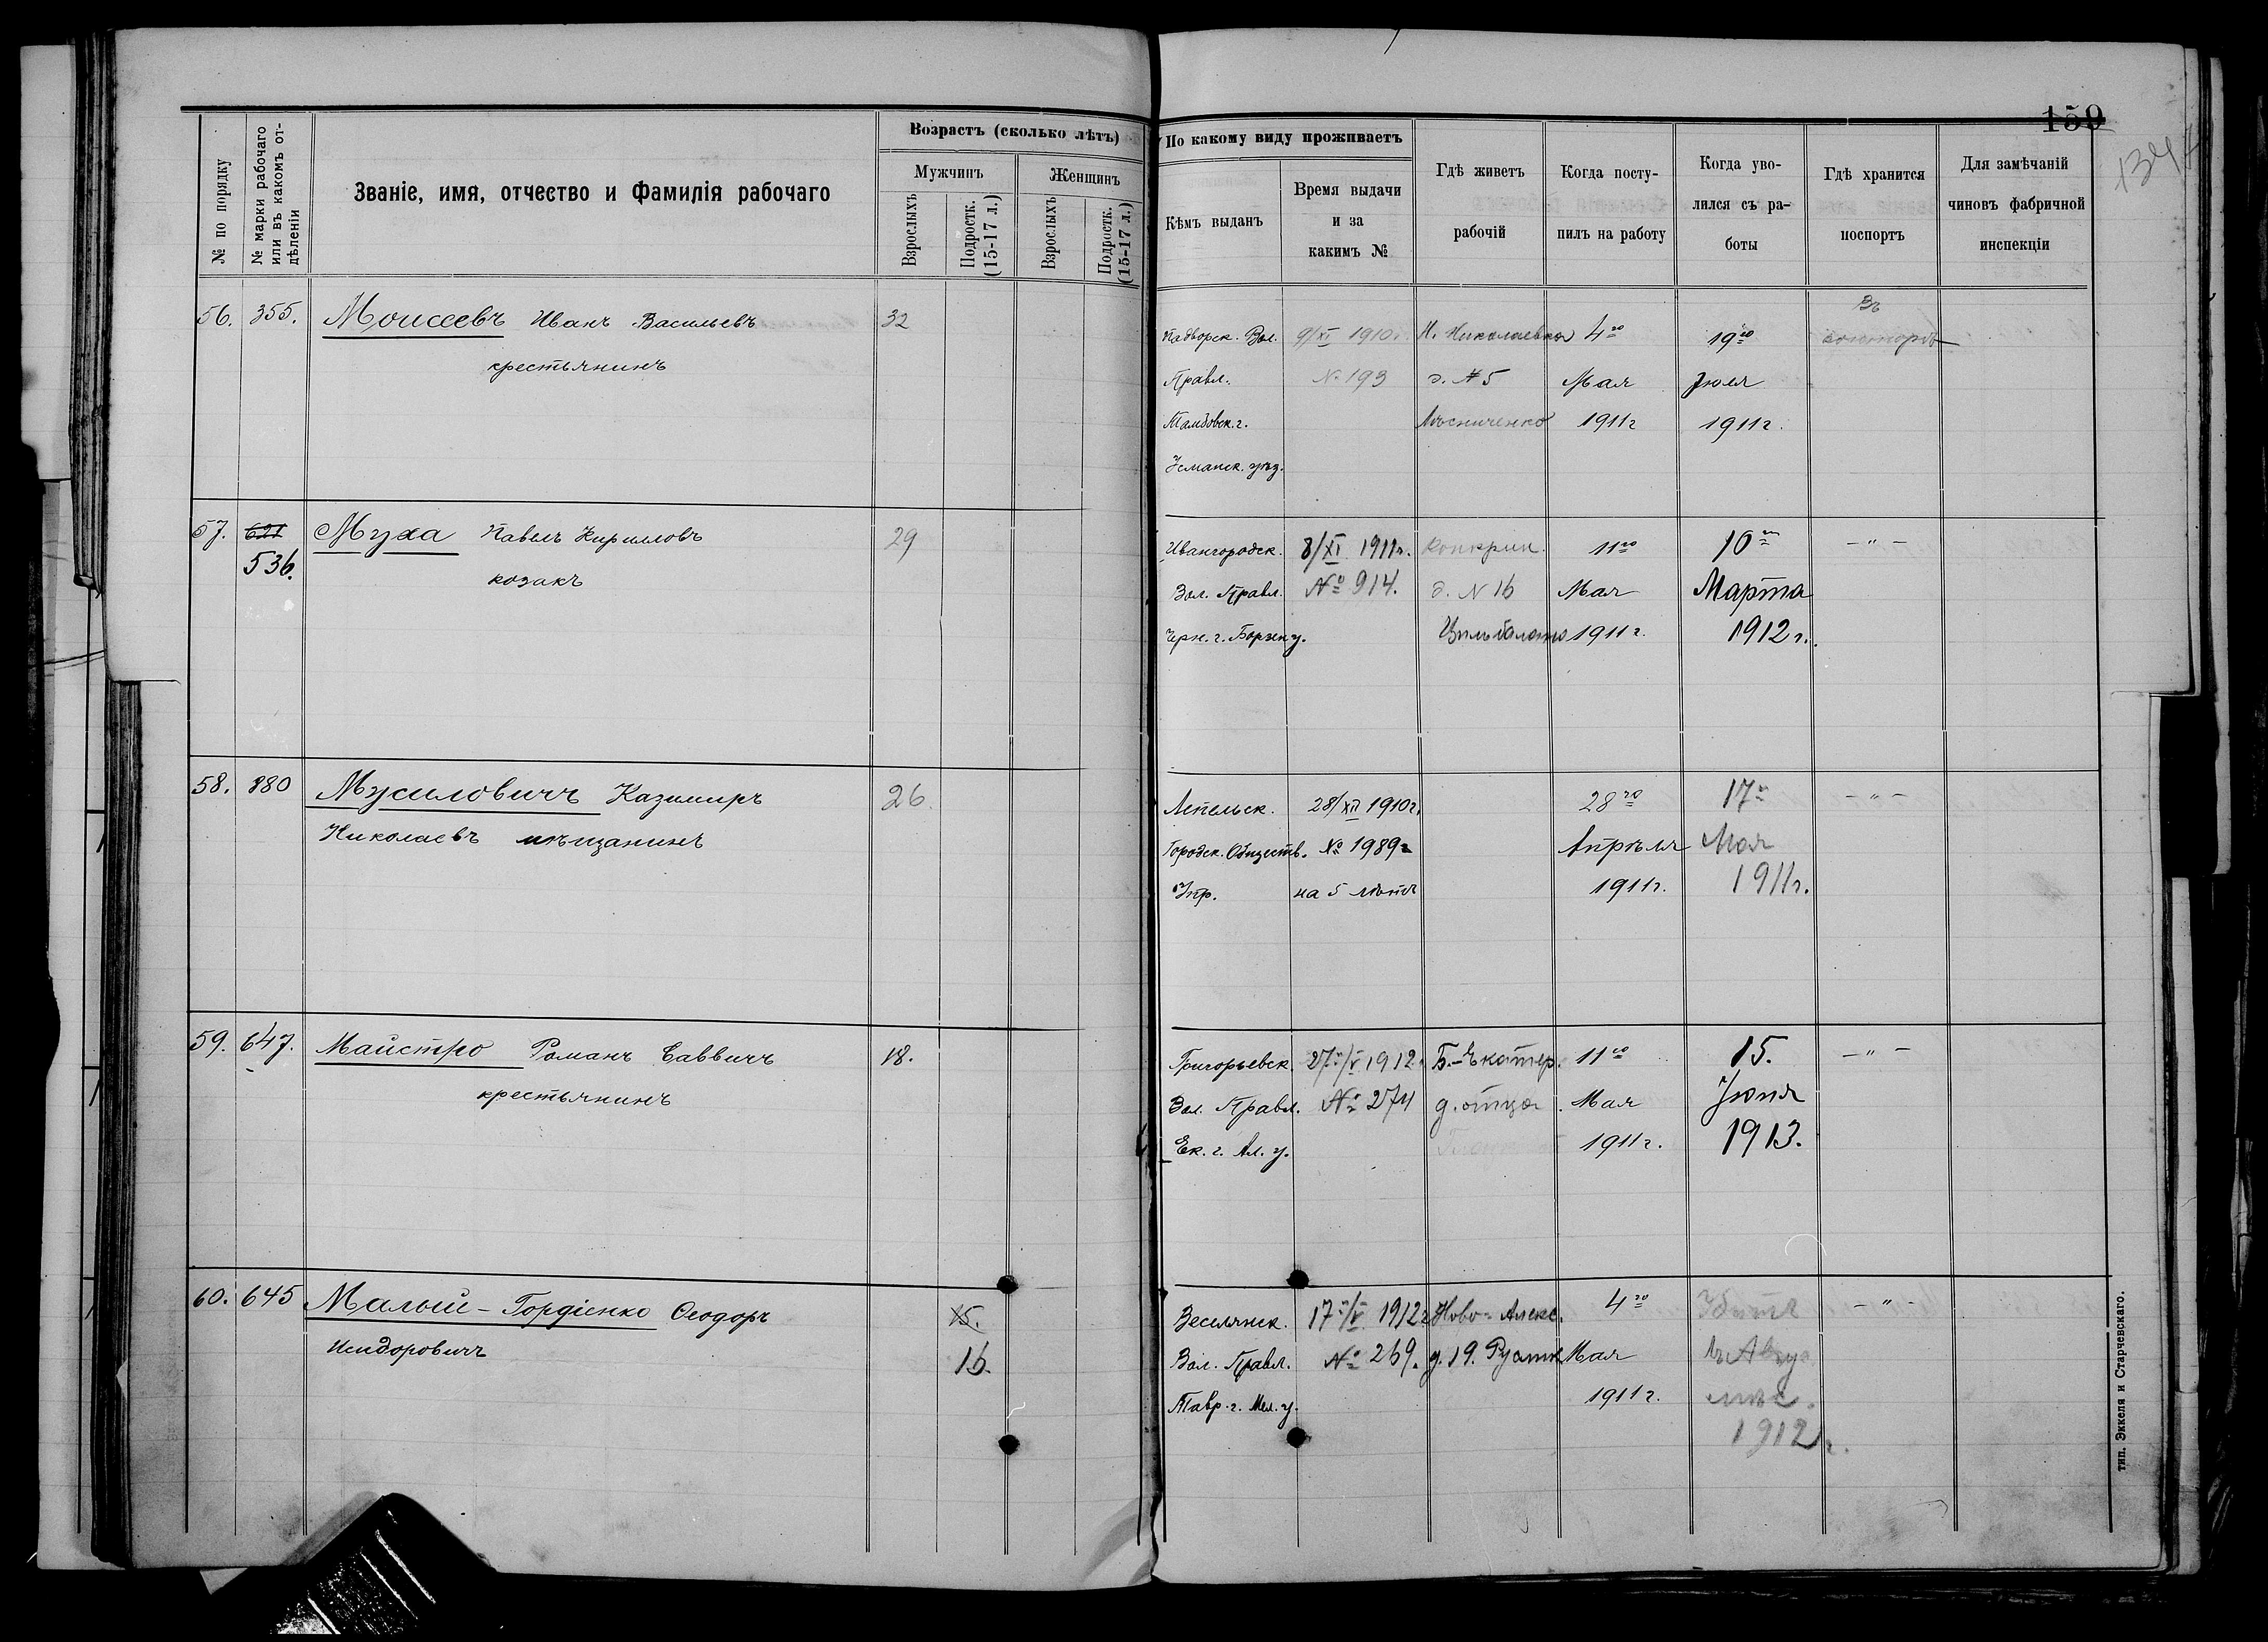 150
134
Возрастъ (сколько лѣтъ)
По какому виду проживаетъ
№ по порядку
№ марки рабочаго или въ какомъ отдѣленіи
Званіе, имя, отчество и Фамилія рабочаго
Мужчинъ
Женщинъ
Взрослыхъ
Подростк. (15-17 л.)
Взрослыхъ
Подростк. (15-17 л.)
Кѣмъ выданъ
Время выдачи
и за
какимъ №
Гдѣ живетъ
рабочій
Когда посту-
пилъ на работу
Когда уво-
лился съ ра-
боты
Гдѣ хранится
поспортъ
Для замѣчаній
чиновъ фабричной
инспекціи
56. 355. Моисеевъ Иванъ Васильевъ 32
крестьянинъ
Въ
Падворск. Вол. 9/XI 1910 г. Н. Николаевка 4го 19го конторѣ
Правл. № 193 д. № 5 Мая Іюля
Тамбовск. г. Лѣсниченко 1911 г. 1911 г.
Усманск. уѣзд.
57. 621 Муха Павелъ Кирилловъ 29
536. козакъ
Ивангородск. 8/XI 1911 г. 11го 10го — " —
Вол. Правл. № 914. д. N 16 Мая Марта
Черн. г. Борзен у. 1911 г. 1912 г.
58. 880 Мусиловичъ Казимиръ 26.
Николаевъ мѣщанинъ
Лепельск. 28/XII 1910 г. 28го 17го — " —
Городск. Обществ. № 1989 Апрѣля Мая
Упр. на 5 лѣтъ 1911 г. 1911 г.
59. 647. Майстро Романъ Саввичъ 18.
крестьянинъ
Григорьевск. 27го/V 1912 Б.-Екатер. 11го 15. — " —
Вол. Правл. № 274 д. отца Мая Іюня
Ек. г. Ал. у. 1911 г. 1913.
60. 645 Малый-Гордіенко Ѳеодоръ 15.
Исидоровичъ 16.
Веселянск. 17го/V 1912 г. Ново-Алекс. 4го — " —
Вол. Правл. № 269. д. 19. Мая
Тавр. г. Мел. у. 1911 г.
1912 г.
тип. Эккеля и Старчевскаго.